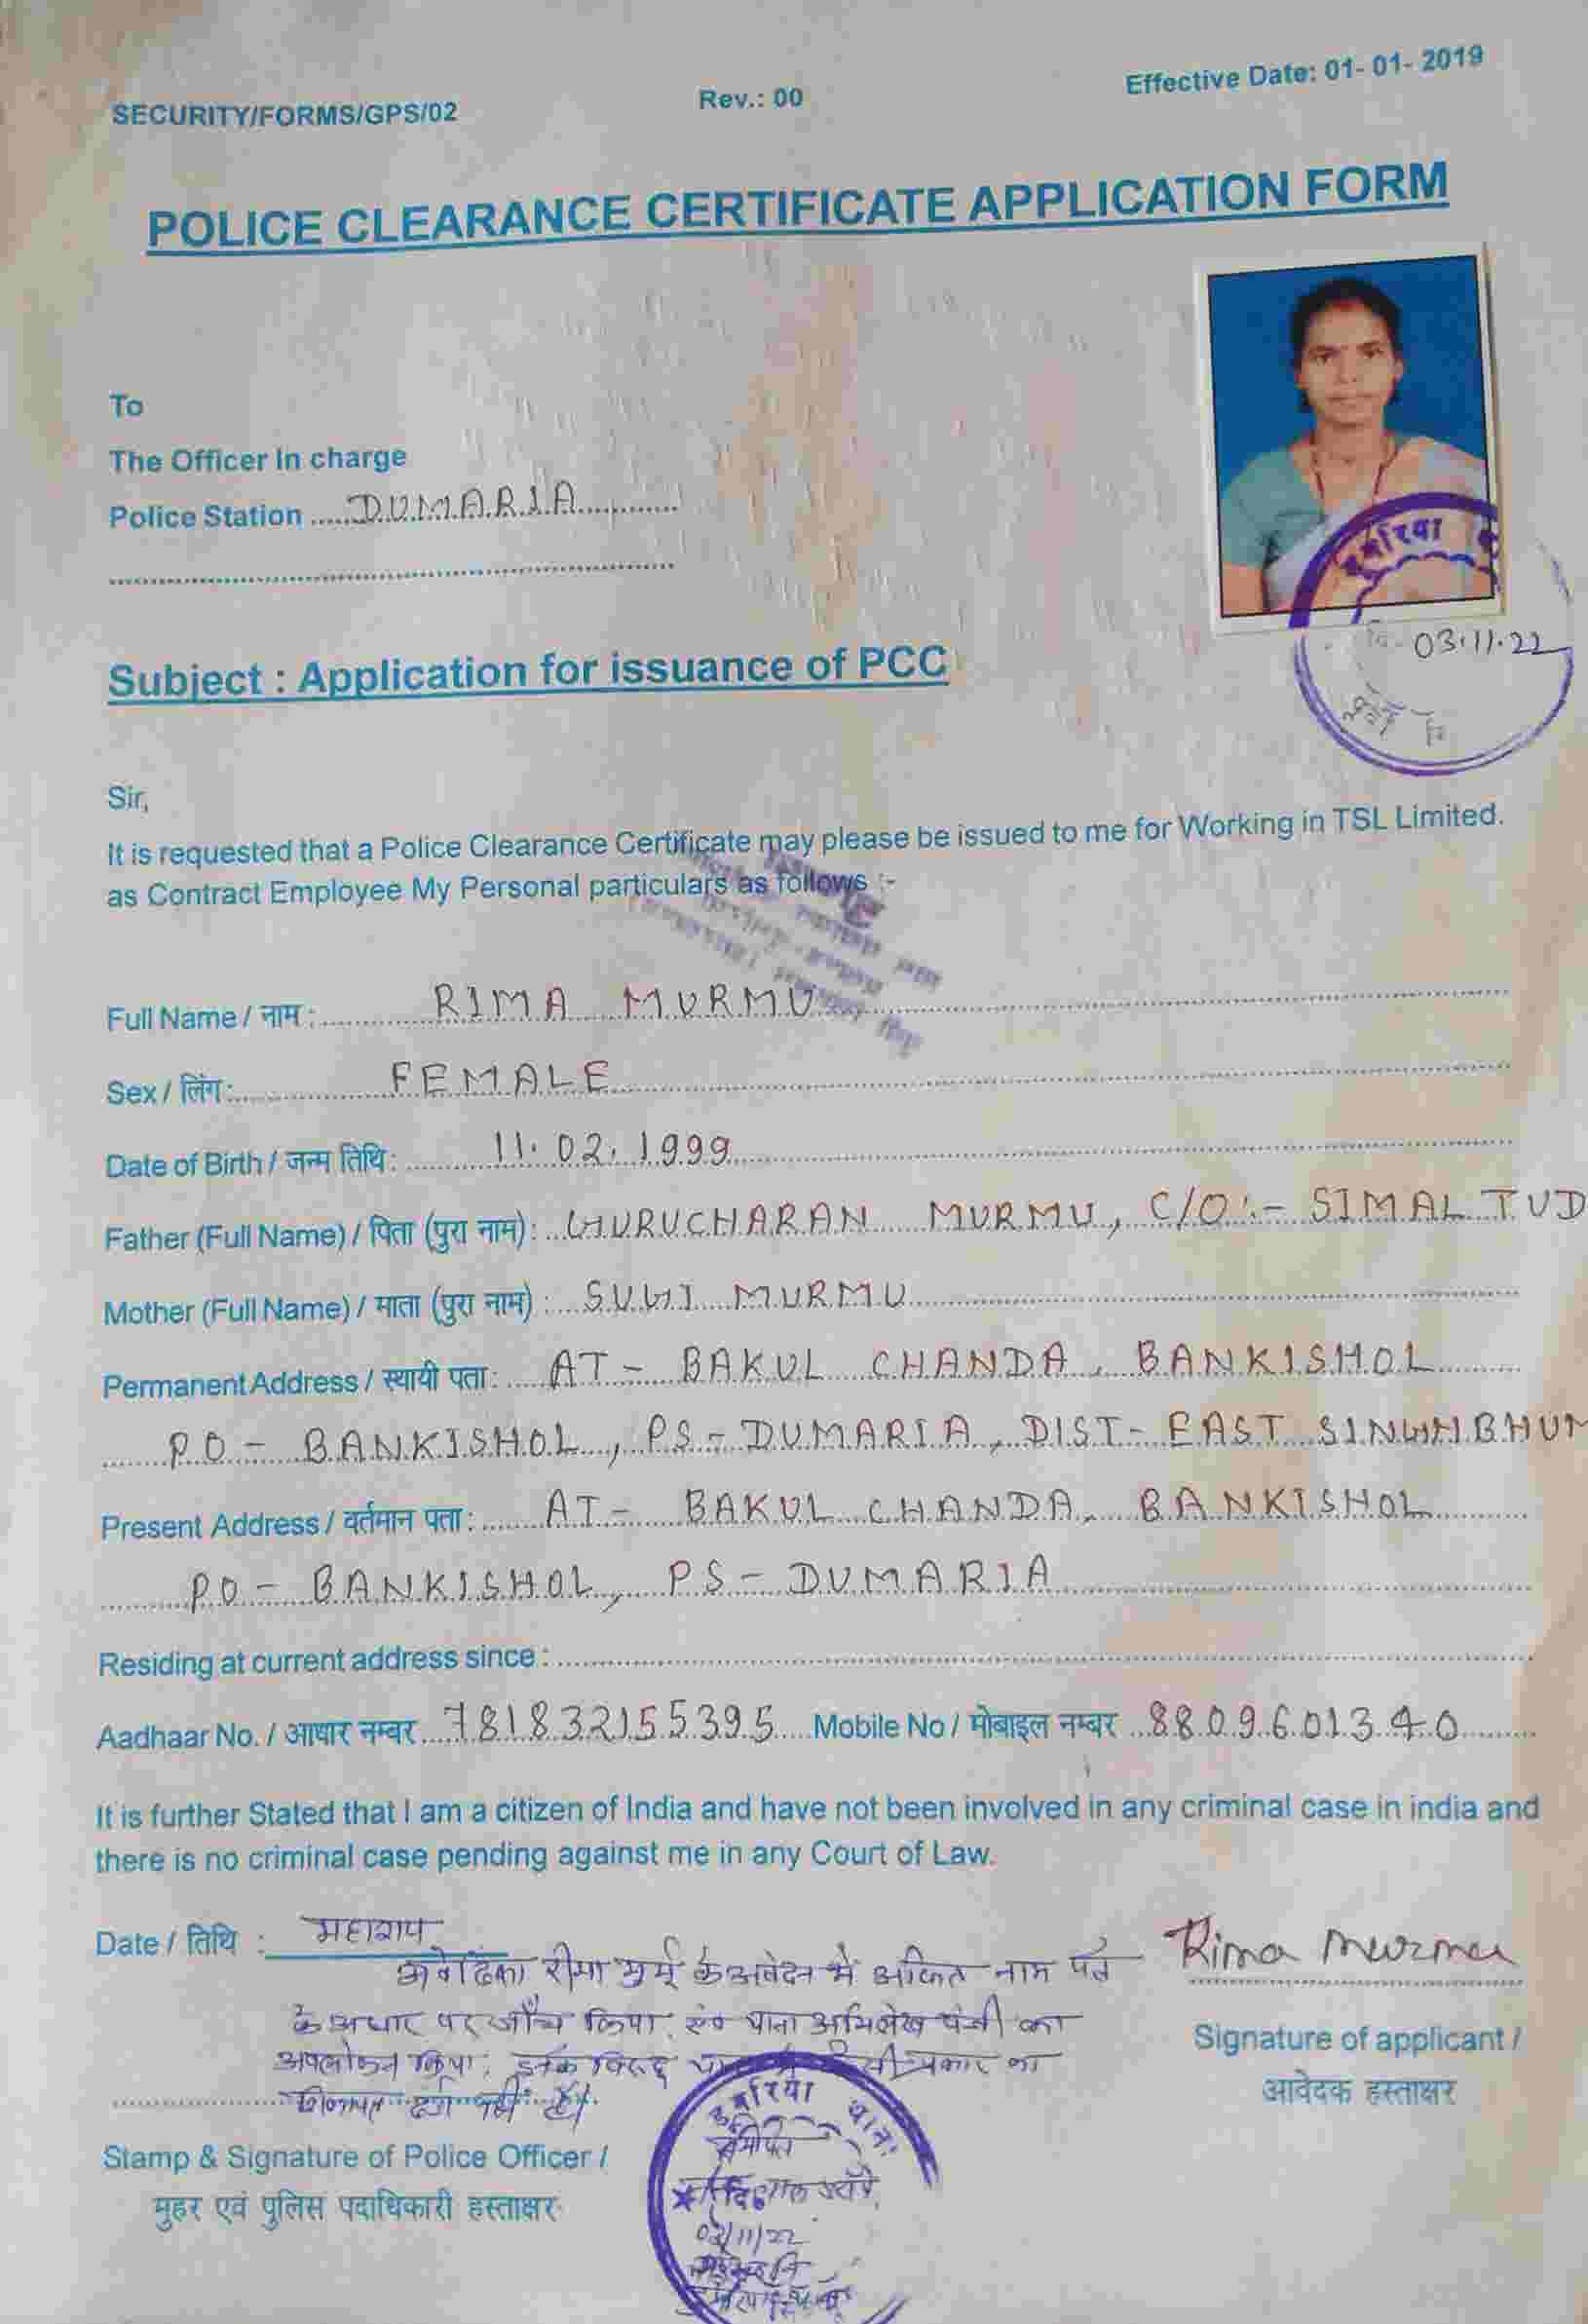 SECURITY/FORMS/GPS/02 Rev.: 00 Effective Date: 01-01-2019
POLICE CLEARANCE CERTIFICATE APPLICATION FORM
To
The Officer In charge
Police Station DUMARIA
03.11.22
Subject : Application for issuance of PCC
Sir,
It is requested that a Police Clearance Certificate may please be issued to me for Working in TSL Limited.
as Contract Employee My Personal particulars as follows :-
Full Name / नाम : RIMA MURMU
Sex / लिंग : FEMALE
Date of Birth / जन्म तिथि : 11.02.1999
Father (Full Name) / पिता (पुरा नाम) : GURUCHARAN MURMU, C/O :- SIMAL TUD
Mother (Full Name) / माता (पुरा नाम) : SUGI MURMU
Permanent Address / स्थायी पता : AT - BAKUL CHANDA, BANKISHOL
PO - BANKISHOL, PS - DUMARIA, DIST - EAST SINGHBHUM
Present Address / वर्तमान पता : AT - BAKUL CHANDA, BANKISHOL
PO - BANKISHOL, PS - DUMARIA
Residing at current address since :
Aadhaar No. / आधार नम्बर 781832155395 Mobile No / मोबाइल नम्बर 8809601340
It is further Stated that I am a citizen of India and have not been involved in any criminal case in india and
there is no criminal case pending against me in any Court of Law.
Date / तिथि : महाशय
आवेदिका रीमा मुर्मू के आवेदन में अंकित नाम पते Rima Murmu
के आधार पर जाँच किया एवं थाना अभिलेख पंजी का
Signature of applicant /
अवलोकन किया, इनके विरुद्ध
आवेदक हस्ताक्षर
शिकायत दर्ज नहीं है।
डुमरिया थाना
Stamp & Signature of Police Officer /
मुहर एवं पुलिस पदाधिकारी हस्ताक्षर
03/11/22